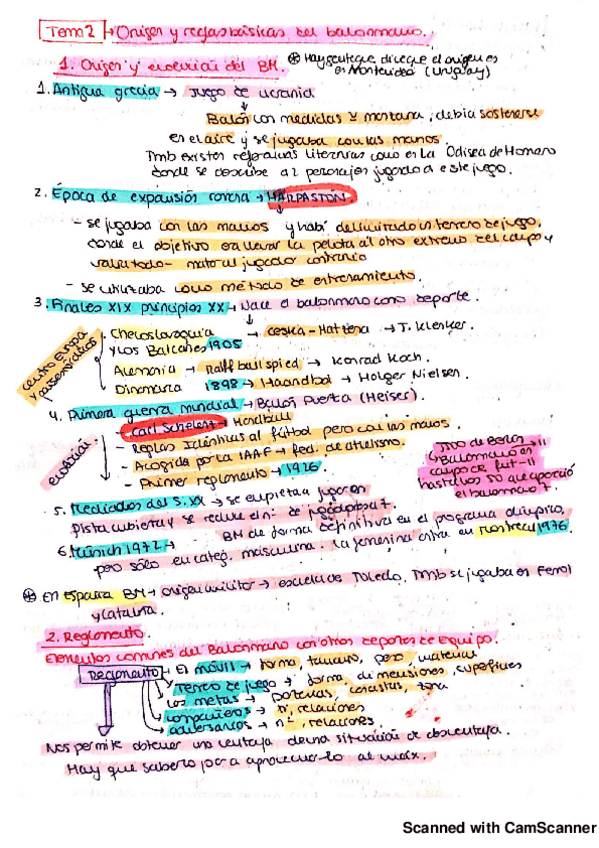 Tema 2 → Origen y reglas básicas del balonmano.
1. Origen y evolución del BM. ⊛ Hay gente que dice que el origen es
en Montevideo (Uruguay)
1. Antigua grecia → Juego de ucrania
Balón con medidas y montana, debía sostenerse
en el aire y se jugaba con las manos.
Tmb existen referencias literarias como en La Odisea de Homero
donde se describe a 2 personajes jugando a este juego.
2. Época de expansión romana → HARPASTON
- se jugaba con las manos y había delimitado un terreno de juego,
donde el objetivo era llevar la pelota al otro extremo del campo y
valía todo - matar al jugador contrario
- se utilizaba como método de entrenamiento.
3. Finales XIX principios XX → Nace el balonmano como deporte.
centro Europa y países nórdicos
Checoslovaquia y los Balcanes 1905 → Ceska - Hattena → J. Klenker.
Alemania → Raffballspied → Konrad Koch.
Dinamarca 1898 → Haandbol → Holger Nielsen.
4. Primera guerra mundial → Balón Puerta (Heiser).
evolución:
- Carl Schelenz → Handball
- Reglas idénticas al fútbol pero con las manos.
- Acogida por la IAAF → fed. de atletismo.
- Primer reglamento → 1926.
11
Balonmano en
campo de fut-11
hasta los 50 que apareció
el balonmano 7.
5. Mediados del S. XX → se empieza a jugar en
pista cubierta y se reduce el nº de jugadores a 7.
6. Münich 1972 → BM de forma definitiva en el programa olímpico,
pero sólo en categ. masculina. La femenina entra en Montreal 1976.
⊛ En España BM → origen militar → escuela de Toledo. Tmb se jugaba en Ferrol
y Cataluña.
2. Reglamento.
Elementos comunes del Balonmano con otros deportes de equipo.
Reglamento → El móvil → forma, tamaño, peso, material
Terreno de juego → forma, dimensiones, superficies
Las metas → porterías, canastas, zona
compañeros → nº, relaciones
adversarios → nº, relaciones.
Nos permite obtener una ventaja de una situación de desventaja.
Hay que saberlo para aprovecharlo al máx.
Scanned with CamScanner